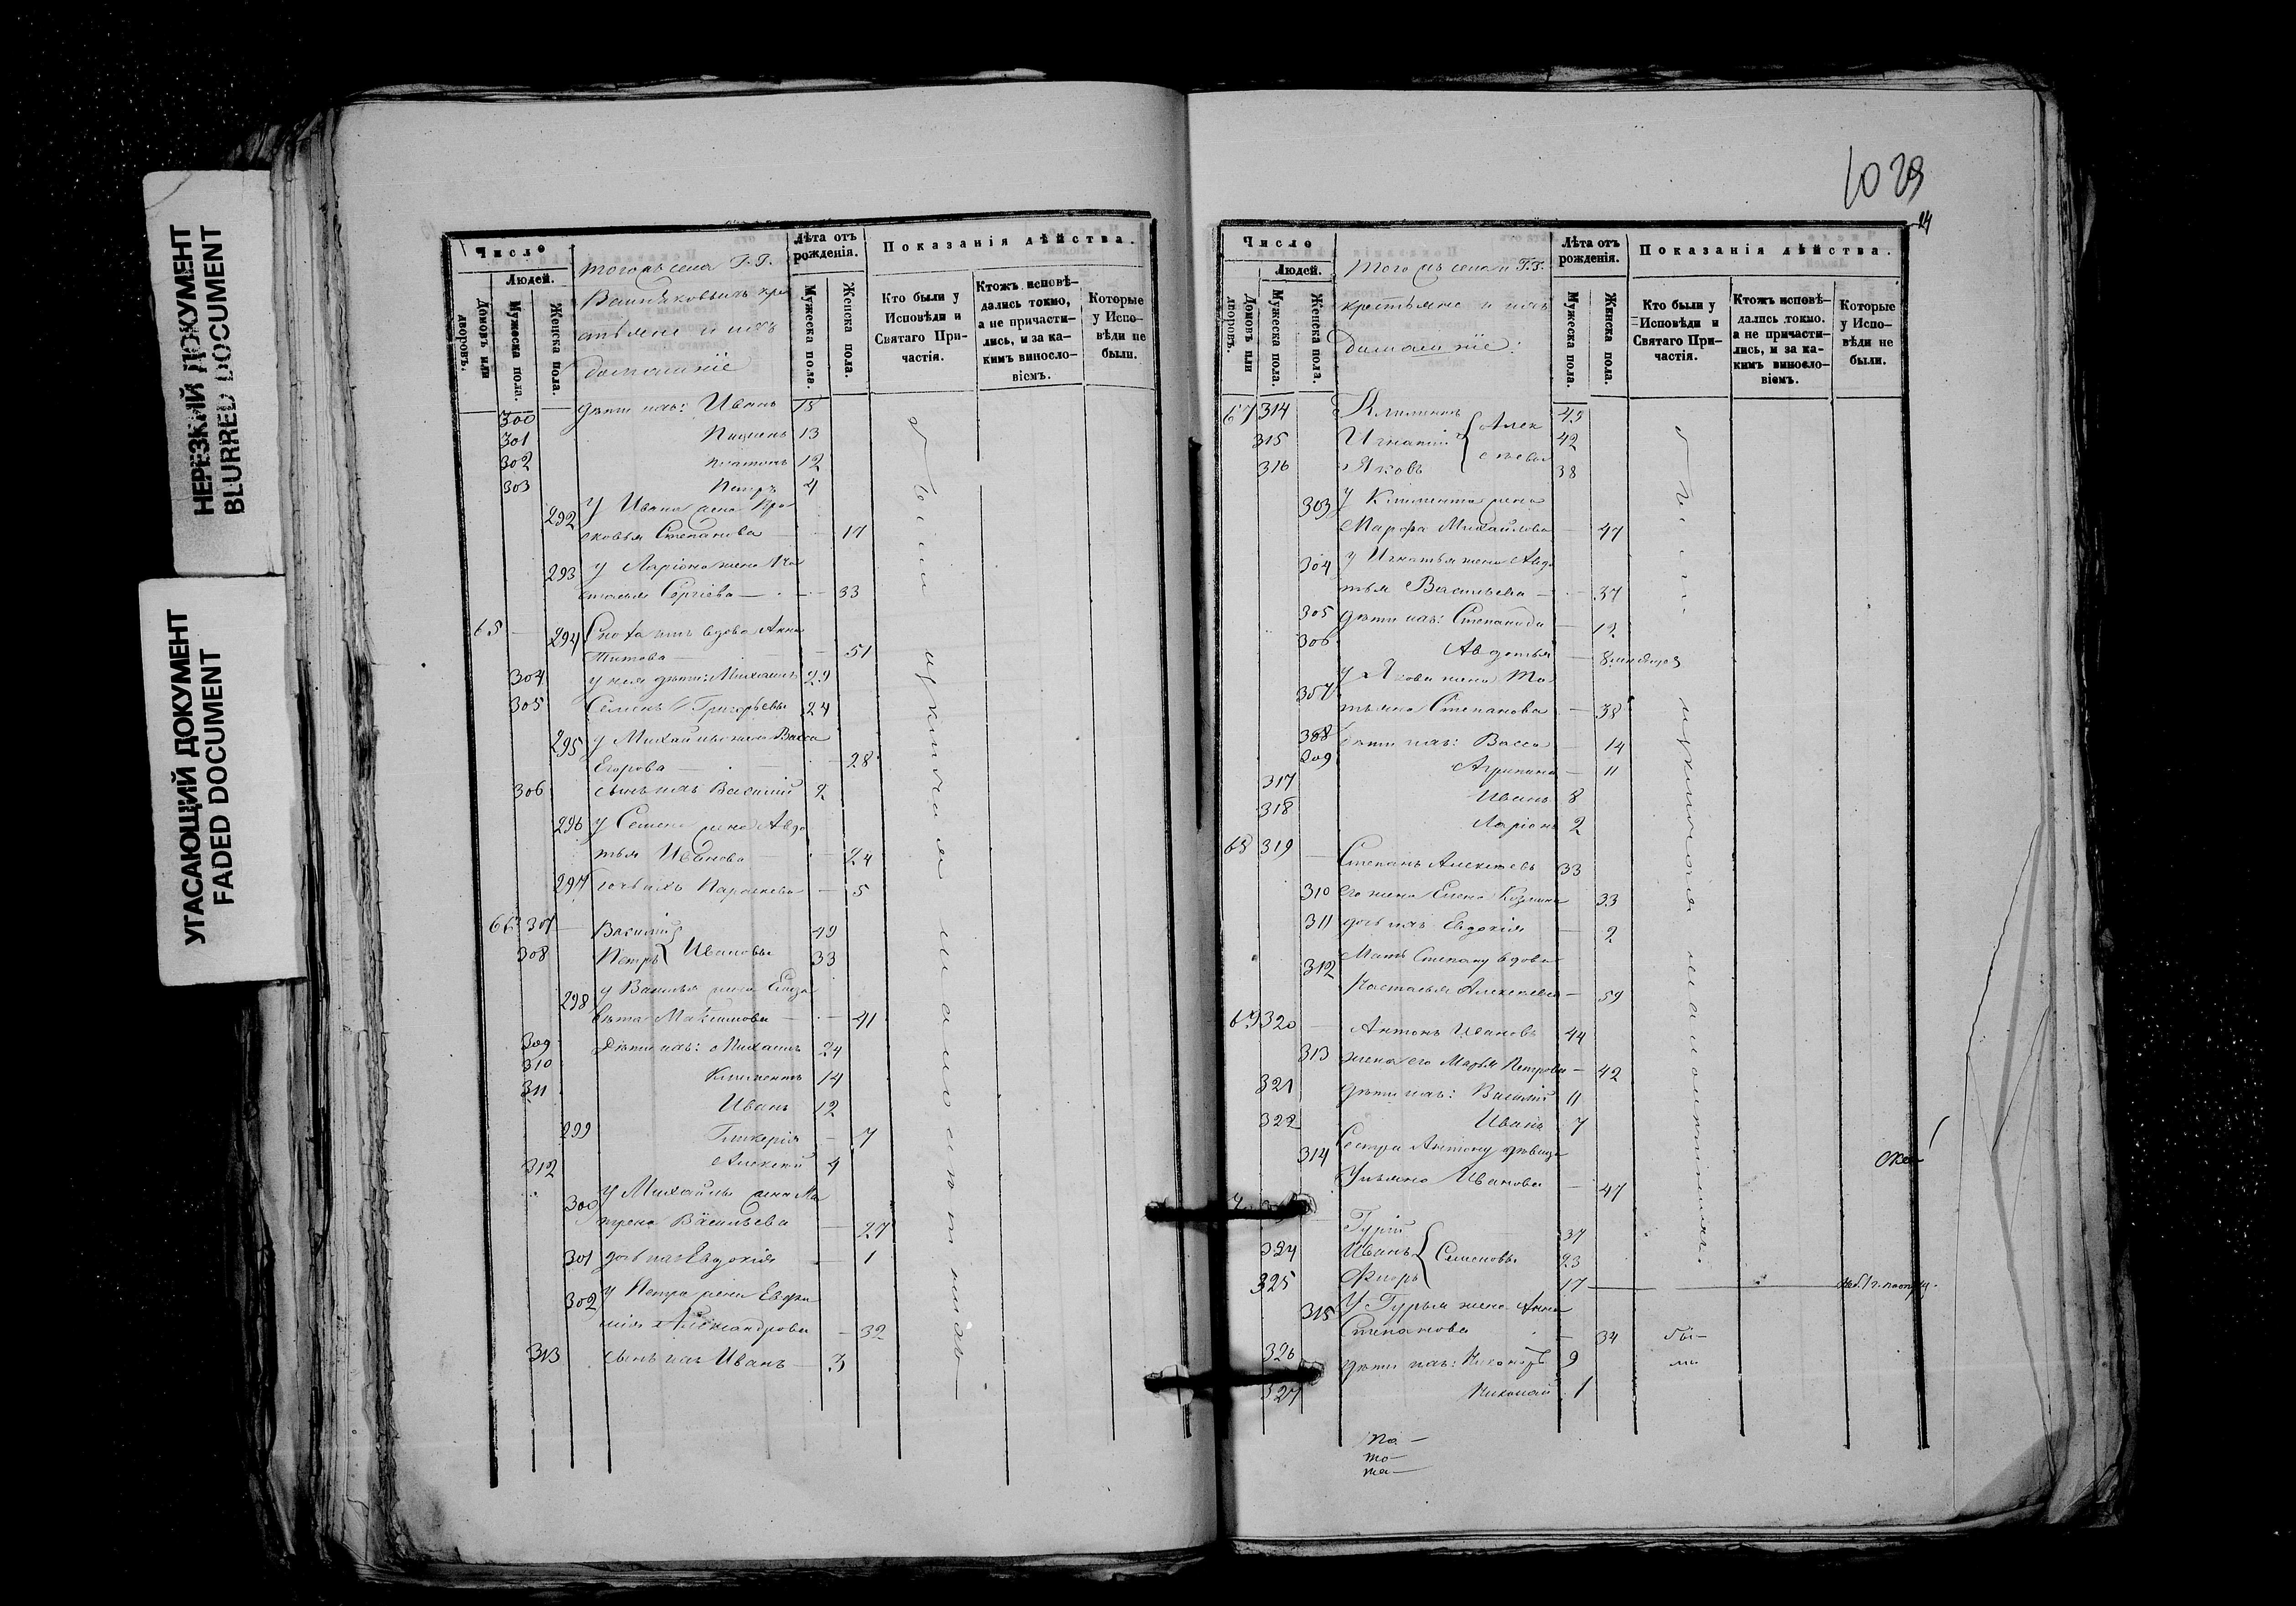 НЕРЕЗКИЙ ДОКУМЕНТ
BLURRED DOCUMENT
УГАСАЮЩИЙ ДОКУМЕНТ
FADED DOCUMENT
Число
Людей.
Домовъ или дворовъ.
Мужеска пола.
Женска пола.
тогожъ села Г.Г.
домашніе
Лѣта отъ рожденія.
Мужеска пола.
Женска пола.
Показанія дѣйства.
Кто были у Исповѣди и Святаго Причастія.
Ктожъ исповѣдались токмо, а не причастились, и за какимъ винословіемъ.
Которые у Исповѣди не были.
300 дѣти ихъ: Иванъ 15
301 13
302 Платонъ 12
303 Петръ 4
292 У Ивана жена Пра
сковья Степанова 17
293 У Ларіона жена На
сталья Сергіева 33
65 294 вдова Анна
Титова 51
304 у нея дѣти: Михаилъ 29
305 Семенъ Григорьевы 24
295 у Михаила жена Васса
Егорова 28
306 сынъ ихъ Василій 2
296 у Семена жена Авдо
тья Иванова 24
297 дочь ихъ Параскева 5
66 307 Василій 49
308 Петръ Ивановы 33
298 у Василья жена Елиза
вета Максимова 41
309 Дѣти ихъ: Михаилъ 24
310 Климентъ 14
311 Иванъ 12
299 Гликерія 7
312 Алексѣй 4
300 У Михайлы жена Ма
трена Васильева 27
301 дочь ихъ Евдокія 1
302 у Петра жена Евфи
мія Александрова 32
313 сынъ ихъ Иванъ 3
1029
24
Число
Людей.
Домовъ или дворовъ.
Мужеска пола.
Женска пола.
Того жъ села Г.Г.
крестьяне и ихъ
домашніе:
Лѣта отъ рожденія.
Мужеска пола.
Женска пола.
Показанія дѣйства.
Кто были у Исповѣди и Святаго Причастія.
Ктожъ исповѣдались токмо. а не причастились, и за какимъ винословіемъ.
Которые у Исповѣди не были.
67 314 Климентъ
315 Игнатій Алек 42
316 Яковъ сѣевы 38
303 У Климента жена
Марфа Михайлова 47
304 У Игнатья жена Авдо
тья Васильева 37
305 дѣти ихъ: Степанида 12
306 Авдотья 8 мѣсяцов
307 у Якова жена Та
тьяна Степанова 38
308 дѣти ихъ: Васса 14
309 Агрипина 11
317 Иванъ 8
318 Ларіонъ 2
68 319 Степанъ Алексѣевъ 33
310 его жена Елена Козмина 33
311 дочь ихъ Евдокія 2
312 Мать Степану вдова
Настасья Алексеева 59
69 320 Антонъ Ивановъ 44
313 жена его Марья Петрова 42
321 дѣти ихъ: Василій 11
322 Иванъ 7
314 Сестра Антону дѣвица
Ульяна Иванова 47
Гурій 37
324 Иванъ Семеновы 23
325 Флоръ 17
315 У Гурья жена Анна
Степанова 34 бы-
326 дѣти ихъ: Никоноръ 9 ли
327 Николай 1